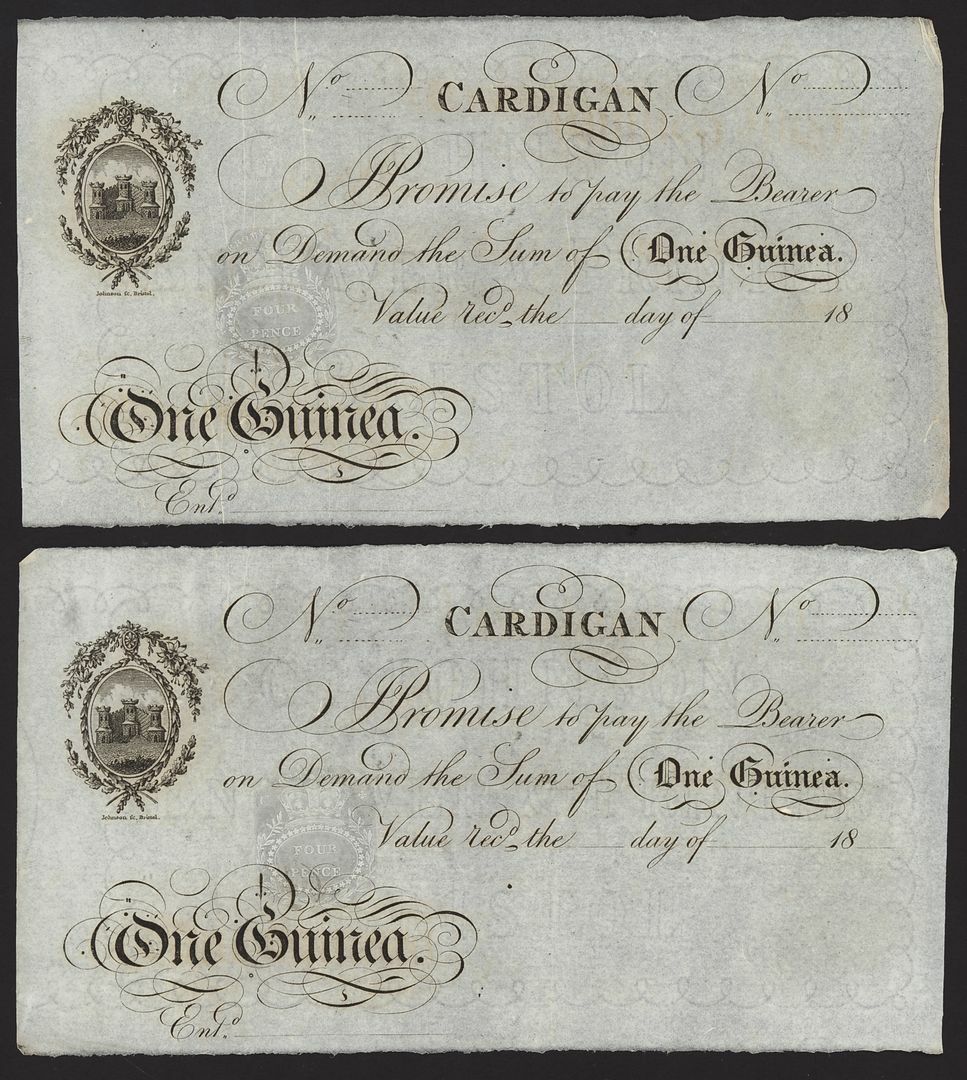 No CARDIGAN No
I Promise to pay the Bearer
on Demand the Sum of One Guinea.
Johnson Sc, Bristol.
Value recd. the day of 18
FOUR
PENCE
One Guinea.
Entd.
No CARDIGAN No
I Promise to pay the Bearer
on Demand the Sum of One Guinea.
Johnson Sc, Bristol.
Value recd. the day of 18
FOUR
PENCE
One Guinea.
Entd.